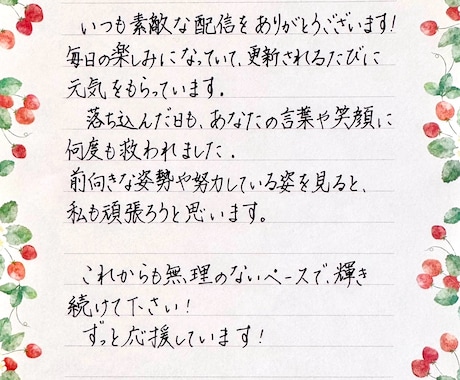 いつも素敵な配信をありがとうございます!
毎日の楽しみになっていて、更新されるたびに
元気をもらっています.
落ち込んだ日も、あなたの言葉や笑顔に
何度も救われました.
前向きな姿勢や努力している姿を見ると、
私も頑張ろうと思います。
これからも無理のないペースで、輝き
続けて下さい!
ずっと応援しています!